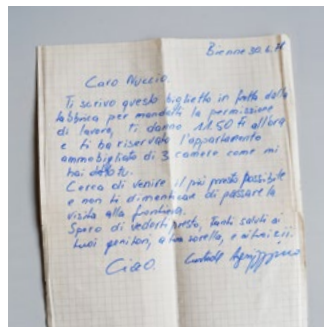 Bienne 30.6.71
Caro Nuccio.
Ti scrivo questo biglietto in fretta dalla
fabbrica per mandarti la permissione
di lavoro, ti danno 11.50 fr all'ora
e ti ha riservato l'appartamento
ammobigliato di 3 camere come mi
hai detto tu.
Cerca di venire il più presto possibile
e non ti dimenticare di passare la
visita alla frontiera.
Spero di vederti presto, tanti saluti ai
tuoi genitori, a tua sorella, e ai tuoi zii.
Ciao.